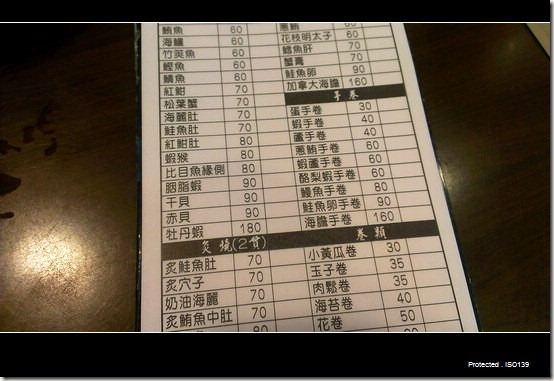 鮪魚 60
海鱺 60
竹筴魚 60
鰹魚 60
鯖魚 60
紅魽 70
松葉蟹 70
海鱺肚 70
鮭魚肚 70
紅魽肚 80
蝦猴 80
比目魚緣側 80
胭脂蝦 90
干貝 90
赤貝 90
牡丹蝦 180
炙燒(2貫)
炙鮭魚肚 70
炙穴子 70
奶油海鱺 70
炙鮪魚中肚 70
80
蔥鮪 60
花枝明太子 60
鱈魚肝 70
蟹膏 70
鮭魚卵 90
加拿大海膽 160
手卷
蛋手卷 30
蝦手卷 40
蘆手卷 40
蔥鮪手卷 60
蝦蘆手卷 60
酪梨蝦手卷 60
鰻魚手卷 80
鮭魚卵手卷 90
海膽手卷 160
卷類
小黃瓜卷 30
玉子卷 35
肉鬆卷 35
海苔卷 40
花卷 50
Protected . ISO139